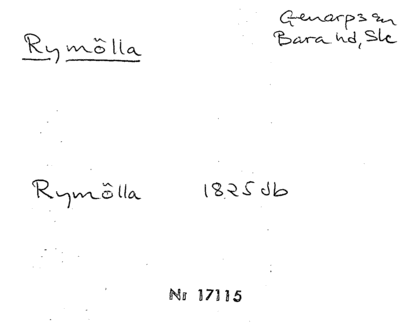 Rymölla
Genarps sn
Bara hd, Sk
Rymölla 1825 db
Nr 17115